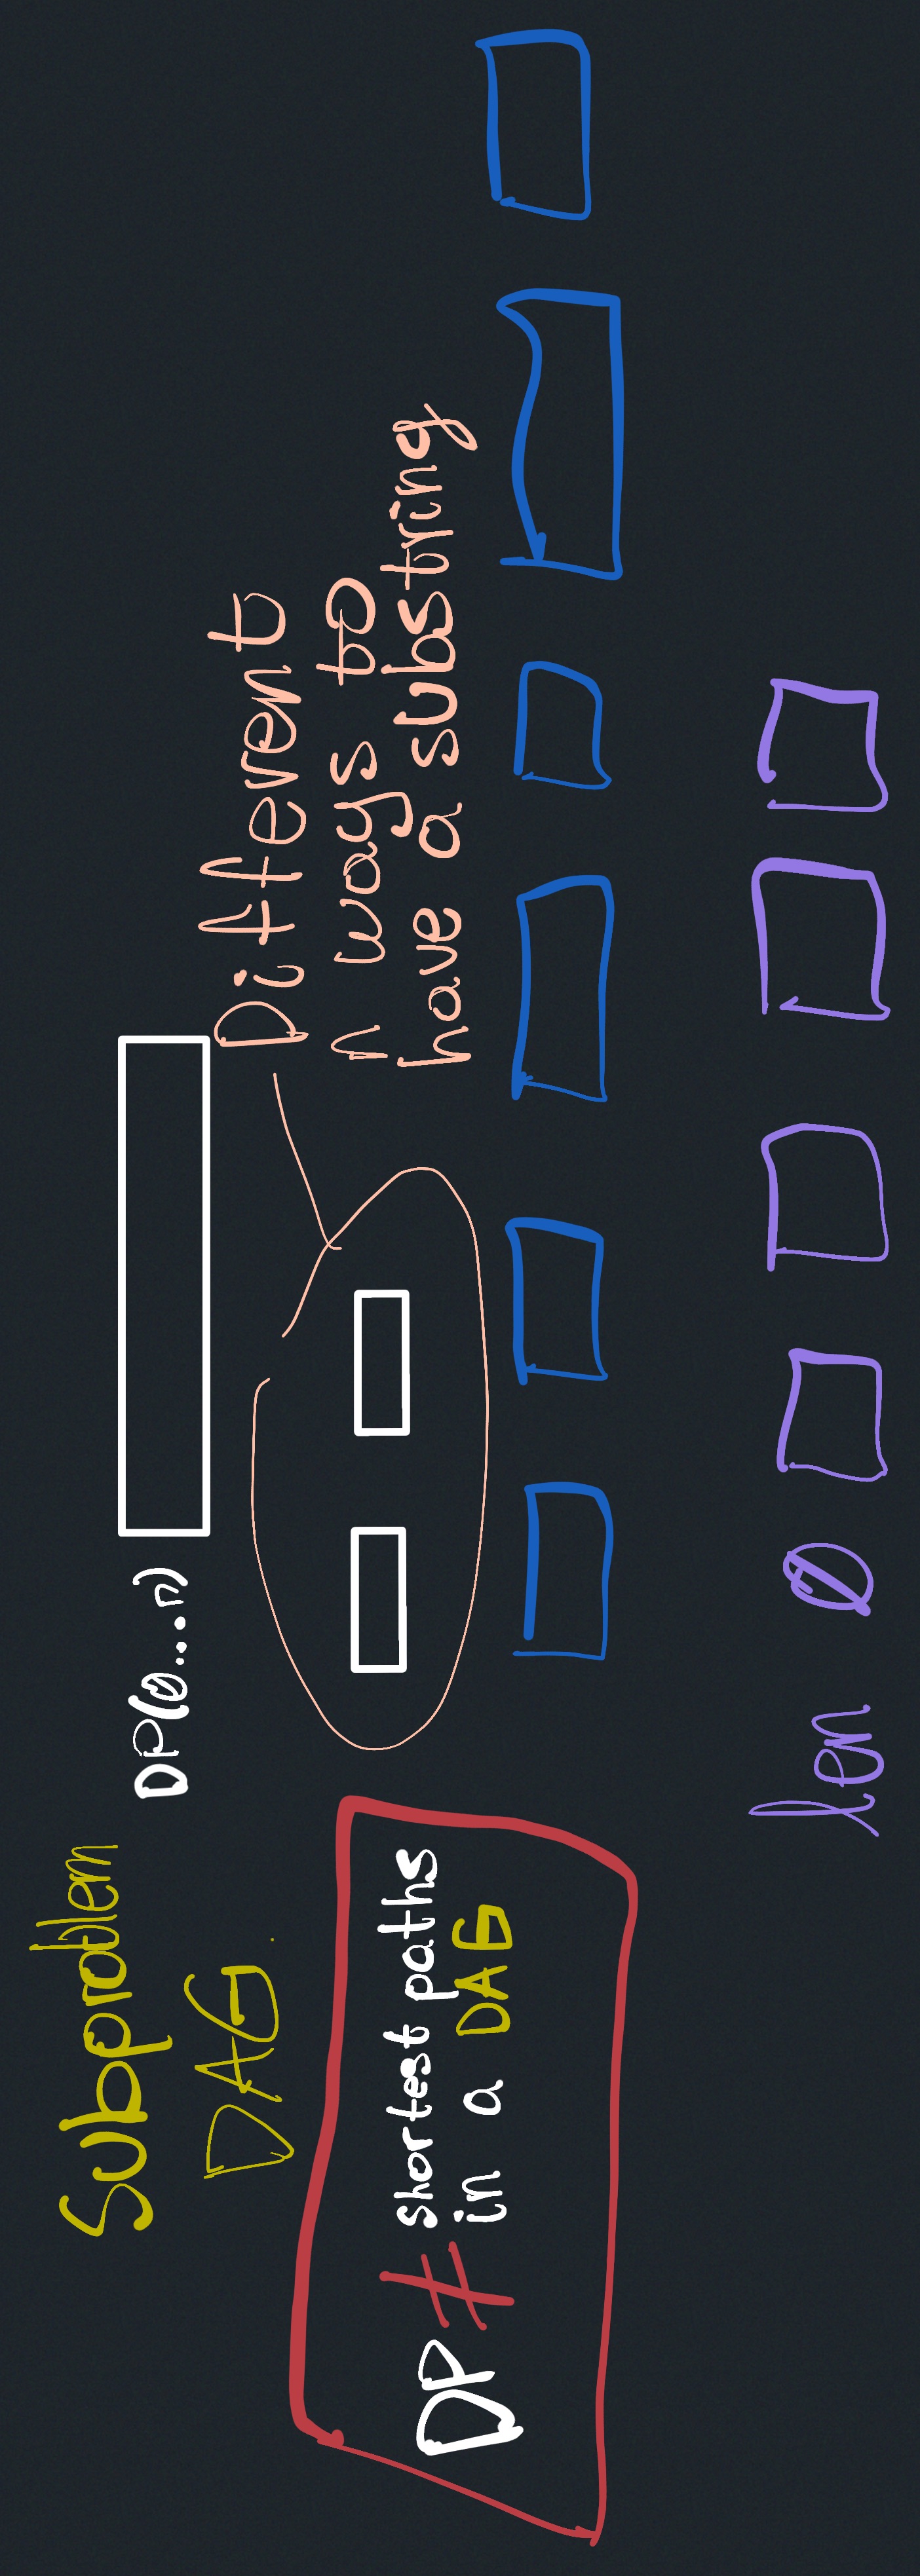 Subproblem
DAG.
DP(0...n)
Different
n ways to
have a substring
DP ≠ shortest paths
in a DAG
len 0